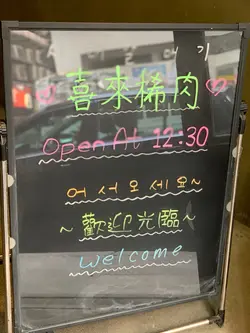 喜來稀肉
Open At 12:30
어서오세요~
~歡迎光臨~
welcome